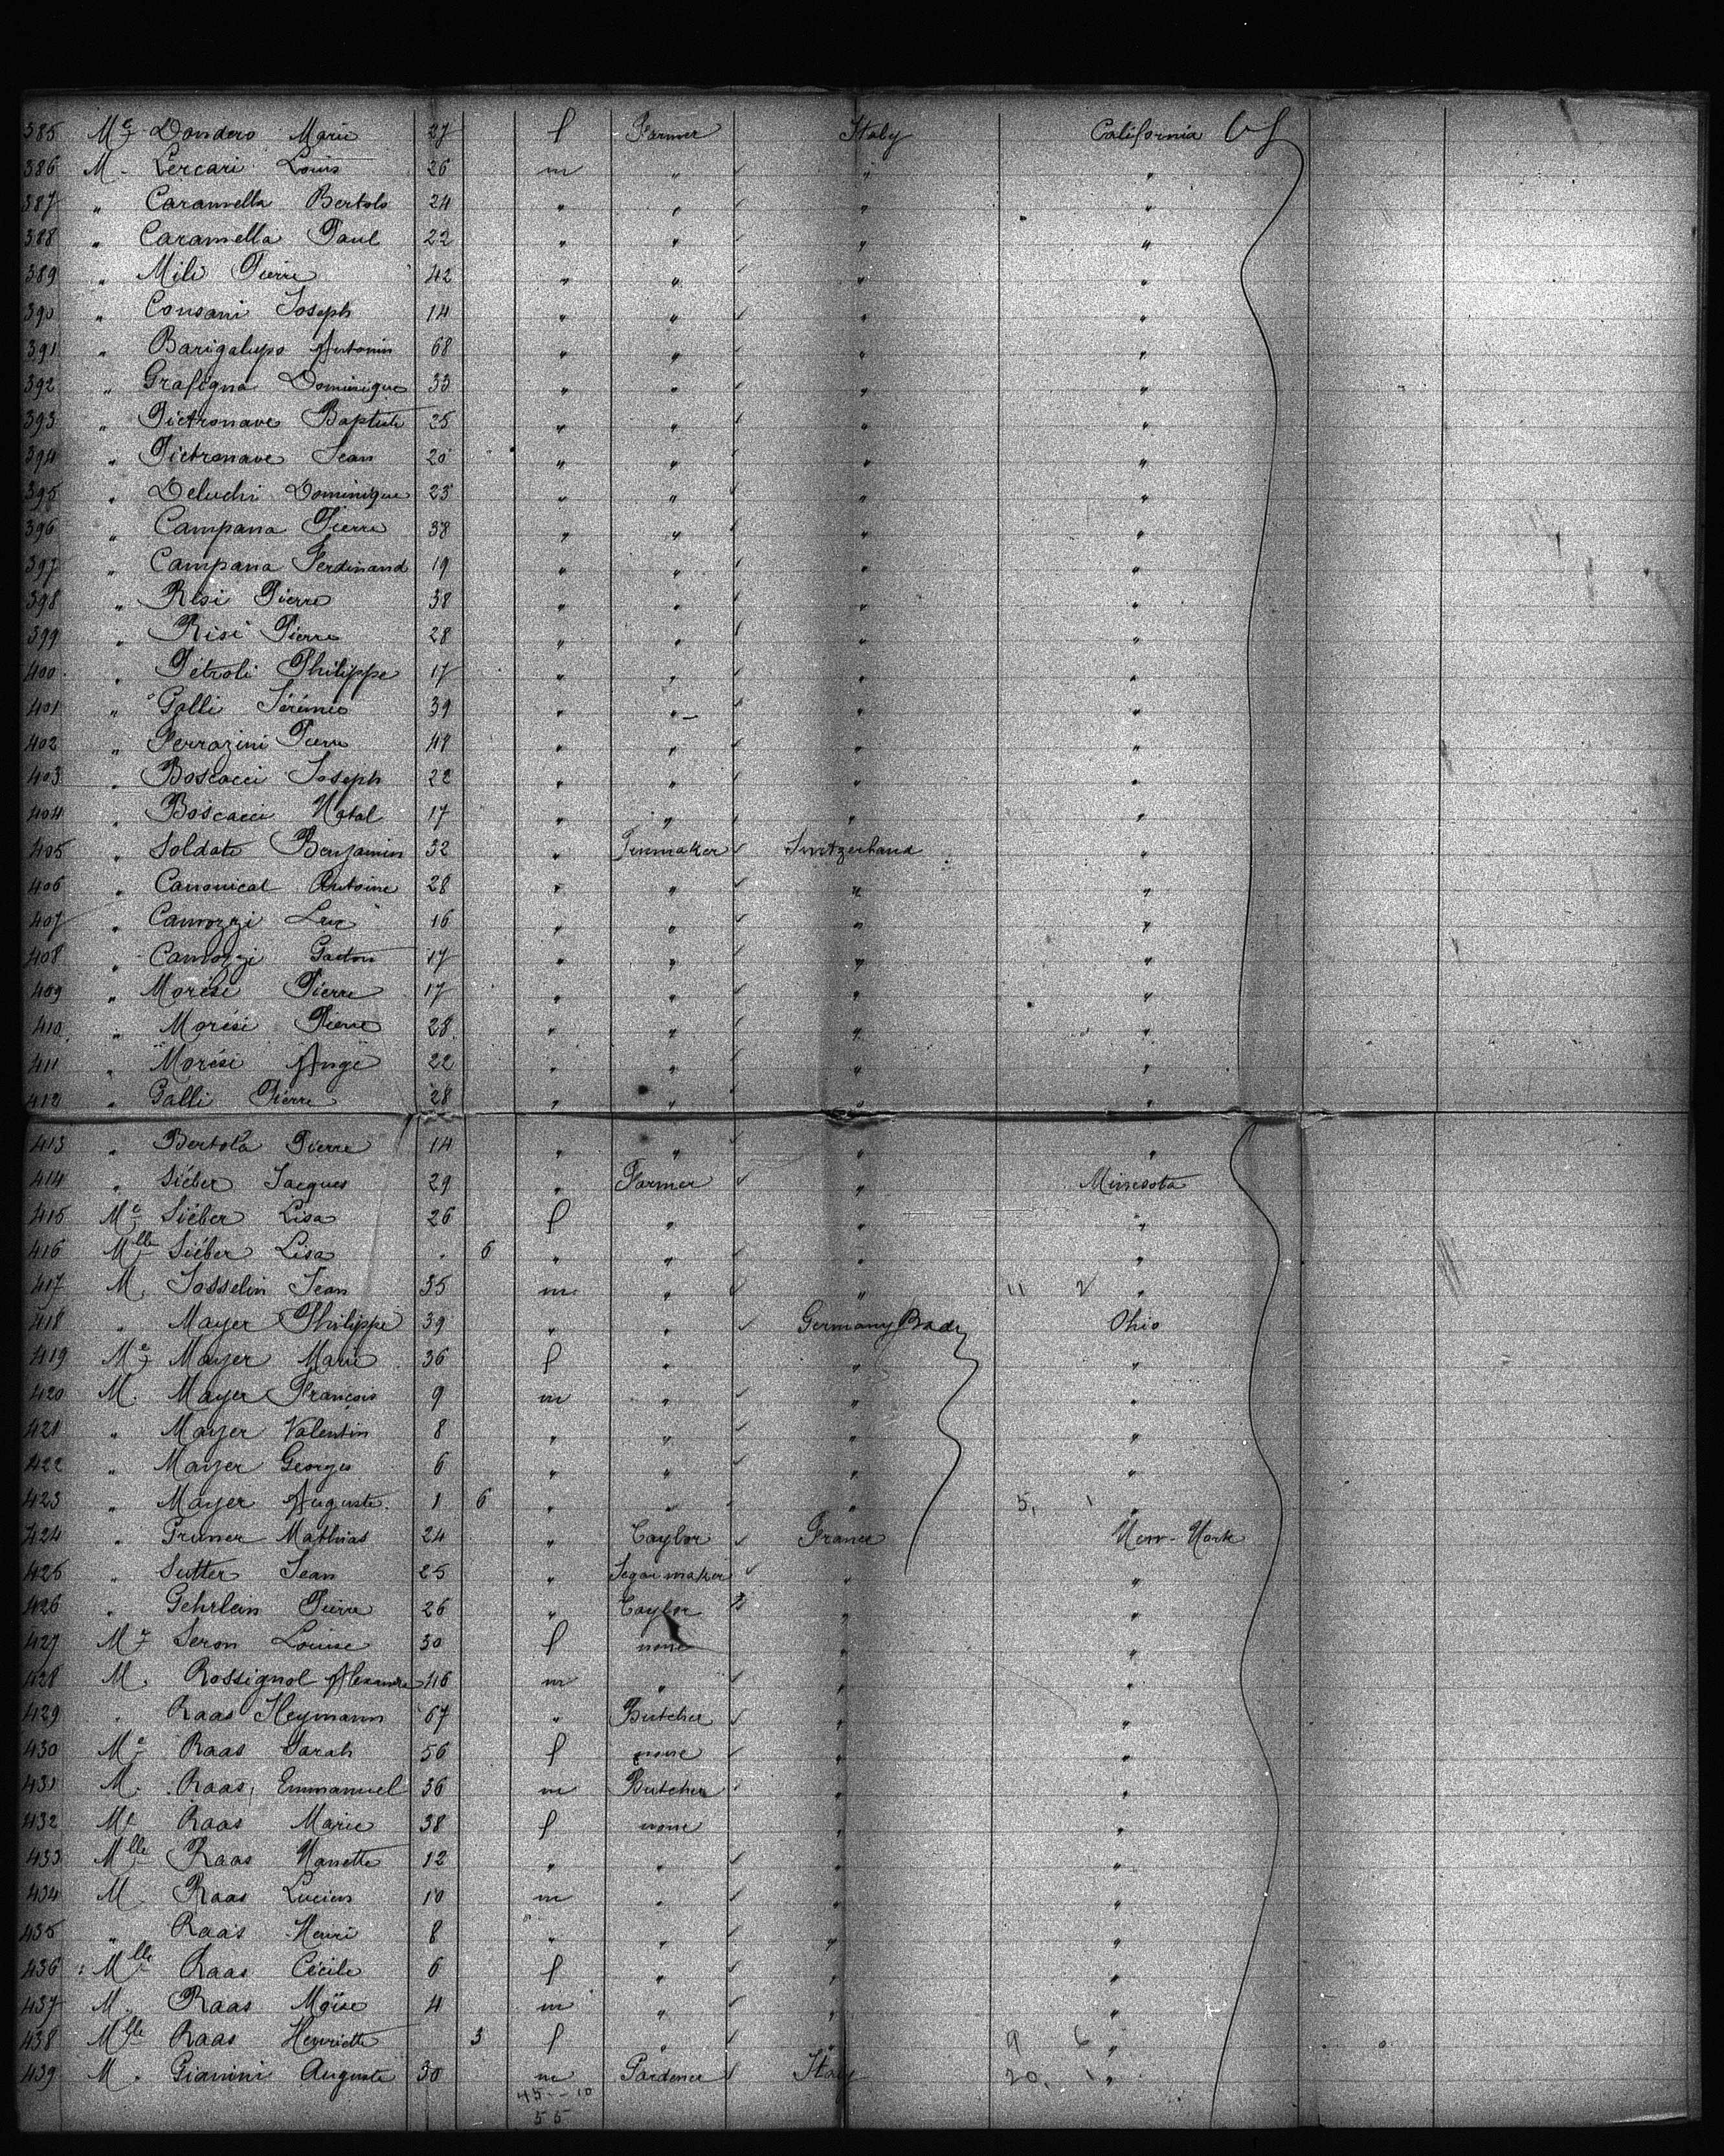 385 Me Dondero Marie 27 f Farmer Italy California
386 M. Lercari Louis 26 m " " "
387 " Caramella Bertolo 24 " " " "
388 " Caramella Paul 22 " " " "
389 " Mili Pierre 42 " " " "
390 " Consani Joseph 14 " " " "
391 " Barigalupo Antonin 68 " " " "
392 " Grafigna Dominique 33 " " " "
393 " Pietronave Baptiste 25 " " " "
394 " Pietronave Jean 20 " " " "
395 " Deluchi Dominique 23 " " " "
396 " Campana Pierre 38 " " " "
397 " Campana Ferdinand 19 " " " "
398 " Resi Pierre 38 " " " "
399 " Risi Pierre 28 " " " "
400 " Pétroli Philippe 17 " " " "
401 " Galli Jérémie 39 " " " "
402 " Ferrazini Pierre " " " "
403 " Boscacci Joseph 22 " " " "
404 " Boscacci Natal 17 " " " "
405 " Soldati Benjamin 32 " Tinmaker Switzerland "
406 " Canonical Antoine 28 " " " "
407 " Camozzi Luc 16 " " " "
408 " Camozzi Gaston 17 " " " "
409 " Morési Pierre 17 " " " "
410 " Morési Pierre 28 " " " "
411 " Morési Ange 22 " " " "
412 " Galli Pierre 28 " " " "
413 " Bertola Pierre 14 " " " "
414 " Siéber Jacques 29 " Farmer " Minesota
415 Me Siéber Lisa 26 f " " "
416 Mlle Siéber Lisa . 6 " " " "
417 M. Josselin Jean 35 m " " 11 2 "
418 " Mayer Philippe 39 " " Germany Bade Ohio
419 Me Mayer Marie 36 f " " "
420 M. Mayer François 9 m " " "
421 " Mayer Valentin 8 " " " "
422 " Mayer Georges 6 " " " "
423 " Mayer Auguste 1 6 " " " 5, 1 "
424 " Pruner Mathias 24 " Taylor France New-York
425 " Sutter Jean 25 " Segar maker " "
426 " Gehrlein Pierre 26 " Taylor " "
427 Me Seron Louise 30 f none " "
428 M. Rossignol Alexandre 46 m " " "
429 " Raas Heymann 67 " Butcher " "
430 Me Raas Sarah 56 f none " "
431 M. Raas, Emmanuel 36 m Butcher " "
432 Me Raas Marie 38 f none " "
433 Mlle Raas Nanette 12 " " " "
434 M. Raas Lucien 10 m " " "
435 " Raas Henri 8 " " " "
436 Mlle Raas Cécile 6 f " " "
437 M. Raas Moïse 4 m " " "
438 Mlle Raas Henriette 3 f " " 9 6 "
439 M. Gianini Auguste 30 m Gardener Italy 20, 1 "
45--10
55